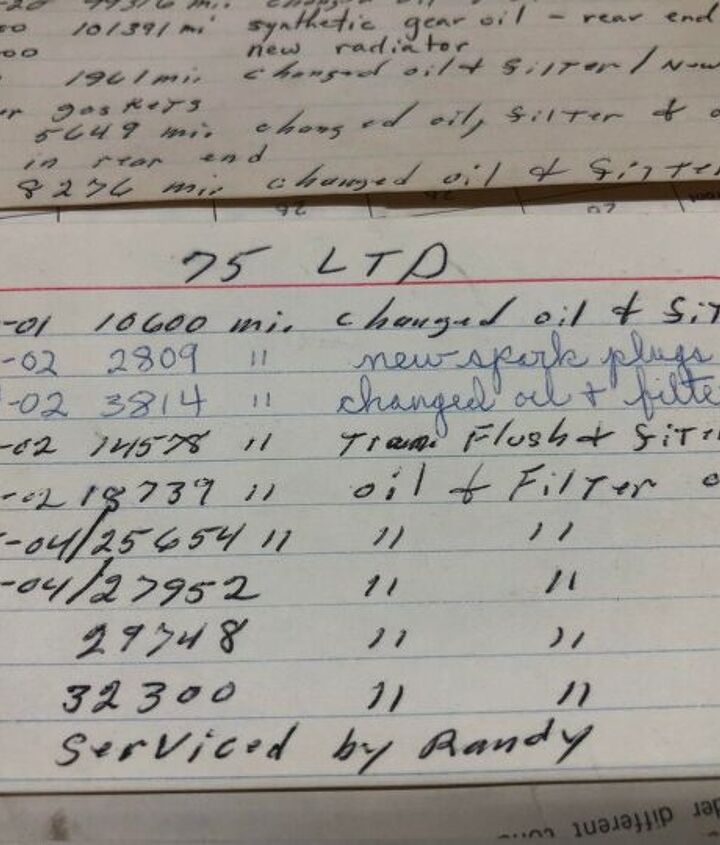 101391 mi synthetic gear oil - rear end
new radiator
1961 mi. changed oil & filter / New
gaskets
5649 mi. changed oil, filter &
in rear end
8276 mi. changed oil & filter
75 LTD
-01 10600 mi. changed oil & filt
-02 2809 " new spark plugs
-02 3814 " changed oil & filte
-02 14578 " Tran. Flush & filt
-02 18739 " oil & Filter
-04/25654 " " "
-04/27952 " "
29748 " "
32300 " "
Serviced by Randy
different